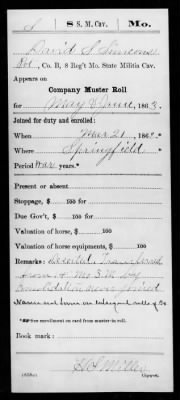 S 8 S. M. Cav. Mo.
David S Simmons
Pvt, Co. B, 8 Reg't Mo. State Militia Cav.
Appears on
Company Muster Roll
for May & June, 1863.
Joined for duty and enrolled:
When Mar 21, 186
Where Springfield
Period War years.*
Present or absent
Stoppage, $ 100 for
Due Gov't, $ 100 for
Valuation of horse, $ 100
Valuation of horse equipments, $ 100
Remarks: Deserted. Transferred
from 4 Mo S.M by
consolidation never joined
Name and
*See enrollment on card from muster-in roll.
Book mark:
H S Miller
(858c) Copyist.